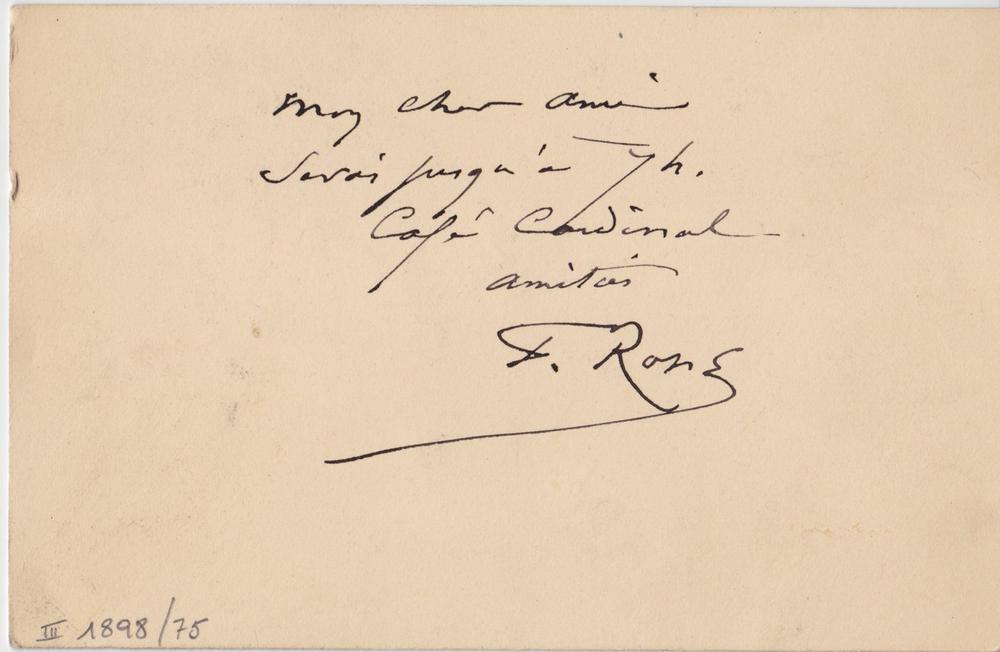 Mon cher ami
Serai jusqu'à 7h.
Café Cardinal
amitiés
F. Rops
III 1898/75